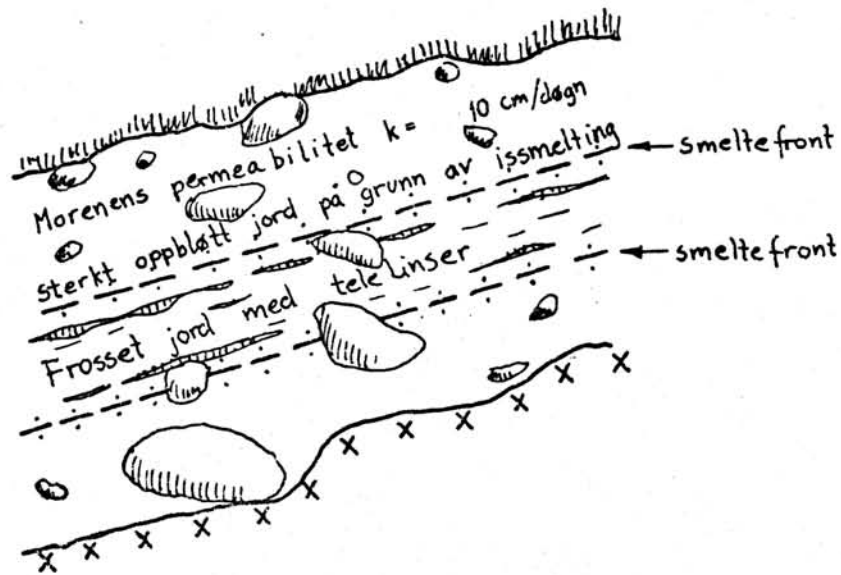 Morenens permeabilitet k = 10 cm/døgn
smeltefront
sterkt oppbløtt jord på grunn av issmelting
smeltefront
Frosset jord med telelinser